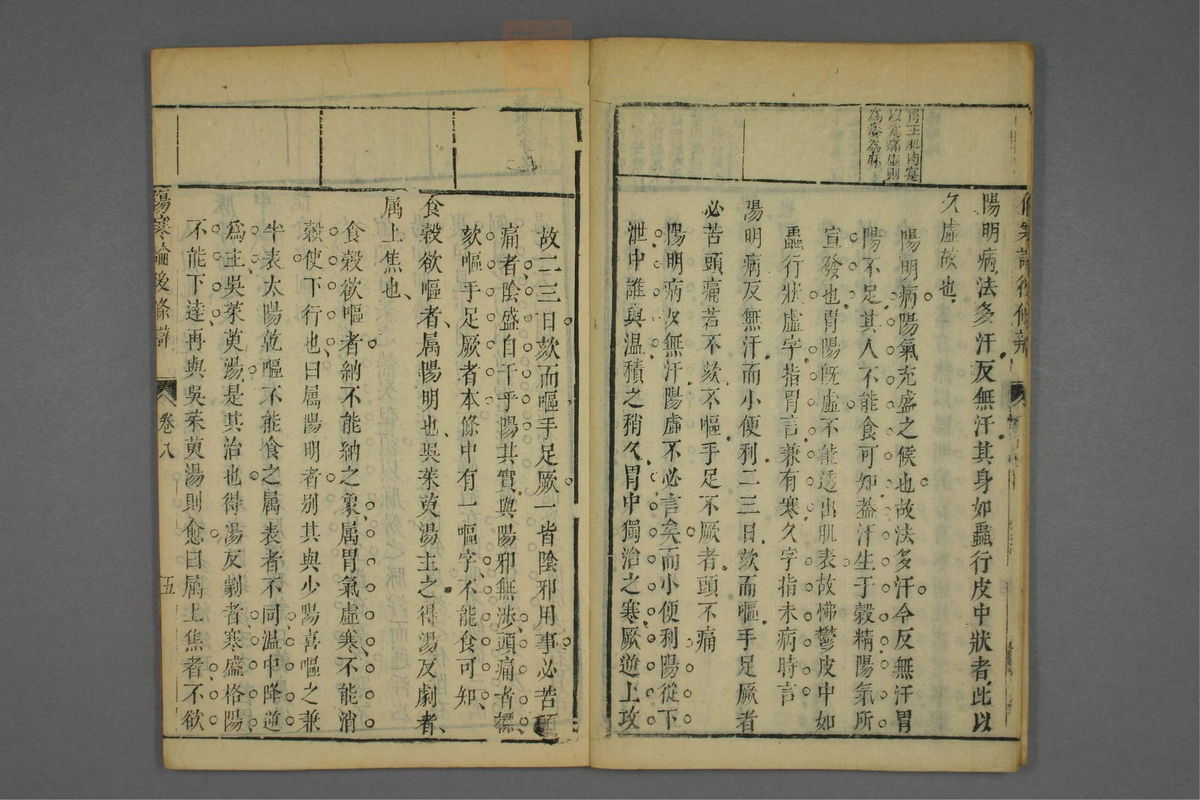 胃主肌肉實
以為痛虛則
為癢為麻
陽明病法多汗反無汗其身如蟲行皮中狀者此以
久虛故也
陽明病陽氣充盛之候也故法多汗今反無汗胃
陽不足其人不能食可知蓋汗生于穀精陽氣所
宣發也胃陽旣虛不能透出肌表故怫鬱皮中如
蟲行狀虛字指胃言兼有寒久字指未病時言
陽明病反無汗而小便利二三日欬而嘔手足厥者
必苦頭痛若不欬不嘔手足不厥者頭不痛
陽明病反無汗陽虛不必言矣而小便利陽從下
泄中誰與温積之稍久胃中獨治之寒厥逆上攻
故二三日欬而嘔手足厥一皆陰邪用事必苦頭
痛者陰盛自干乎陽其實與陽邪無涉頭痛者標
欬嘔手足厥者本條中有一嘔字不能食可知
食穀欲嘔者属陽明也吳茱萸湯主之得湯反劇者
属上焦也
食穀欲嘔者納不能納之象属胃氣虛寒不能消
穀使下行也曰属陽明者别其與少陽喜嘔之兼
半表太陽乾嘔不能食之属表者不同温中降逆
為主吳茱萸湯是其治也得湯反劇者寒盛格陽
不能下達再與吳茱萸湯則愈曰属上焦者不欲
傷寒論後條辯
卷八
五